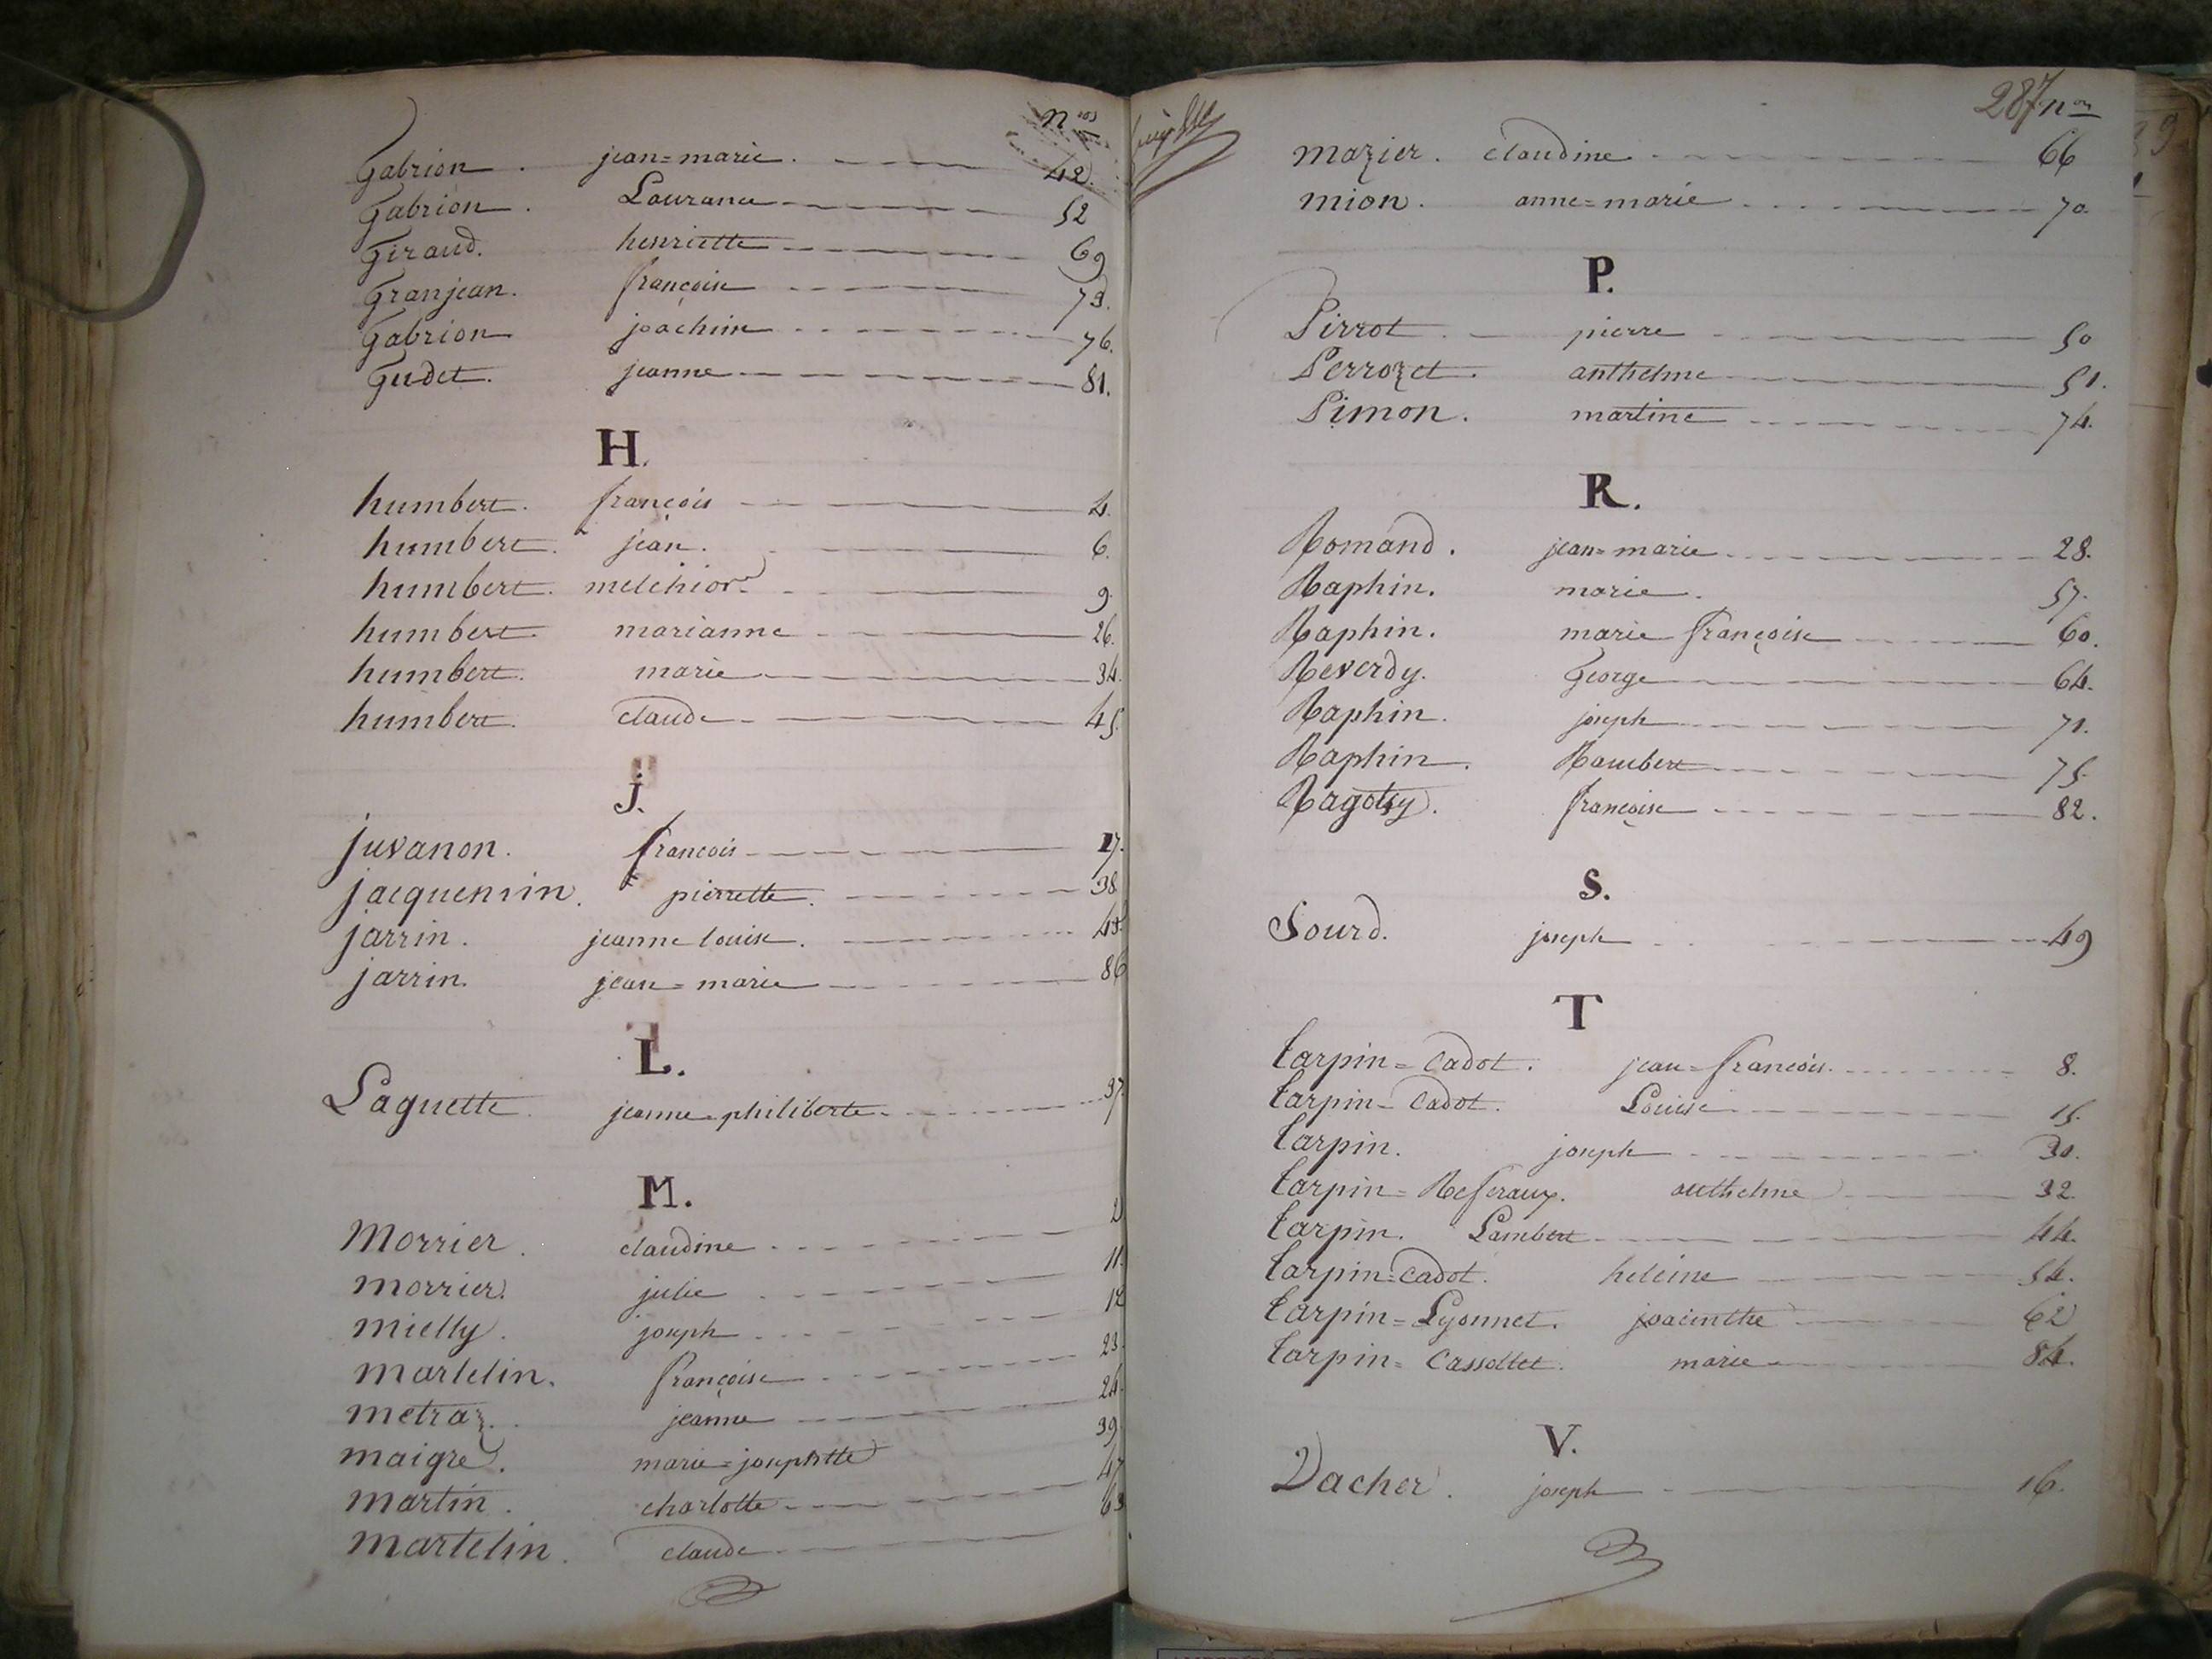 nos
Gabrion. jean=marie. 42.
Gabrion. Laurance 52
Giraud. henriette 69
Granjean. françoise 73.
Gabrion joachim 76.
Gudet. jeanne 81.
H.
humbert. françois 4.
humbert. jean. 6.
humbert. melchior 9.
humbert. marianne 26.
humbert. marie 34.
humbert. claude 45.
J.
juvanon. francois 17.
jacquemin. pierrette. 38.
jarrin. jeanne louise.
jarrin. jean=marie 86
L.
Laguette. jeanne=philiberte 37.
M.
Morrier. claudine
morrier. julie 11.
mielly. joseph 12
martelin. françoise 23.
metraz. jeanne 24.
maigre. marie=josephtte 39.
martin. charlotte 47
martelin. claude 63
287 nos
mazier. claudine 66
mion. anne=marie 70.
P.
Pirrot pierre 50
Perrozet. anthelme 51.
Pimon. martine 74.
R.
Romand. jean=marie 28.
Raphin. marie. 57.
Raphin. marie françoise 60.
Reverdy. George 64.
Raphin. joseph 71.
Raphin. Rambert 75.
Ragotsy. françoise 82.
S.
Sourd. joseph 49
T
tarpin=cadot. jean=francois. 8.
tarpin=cadot. Louise 15.
tarpin. joseph
tarpin= anthelme 32.
tarpin. Lambert 44.
tarpin=cadot. heleine 54.
tarpin=Lyonnet. joacinthe 62
tarpin=Cassottet. marie 84.
V.
Vacher. joseph 16.